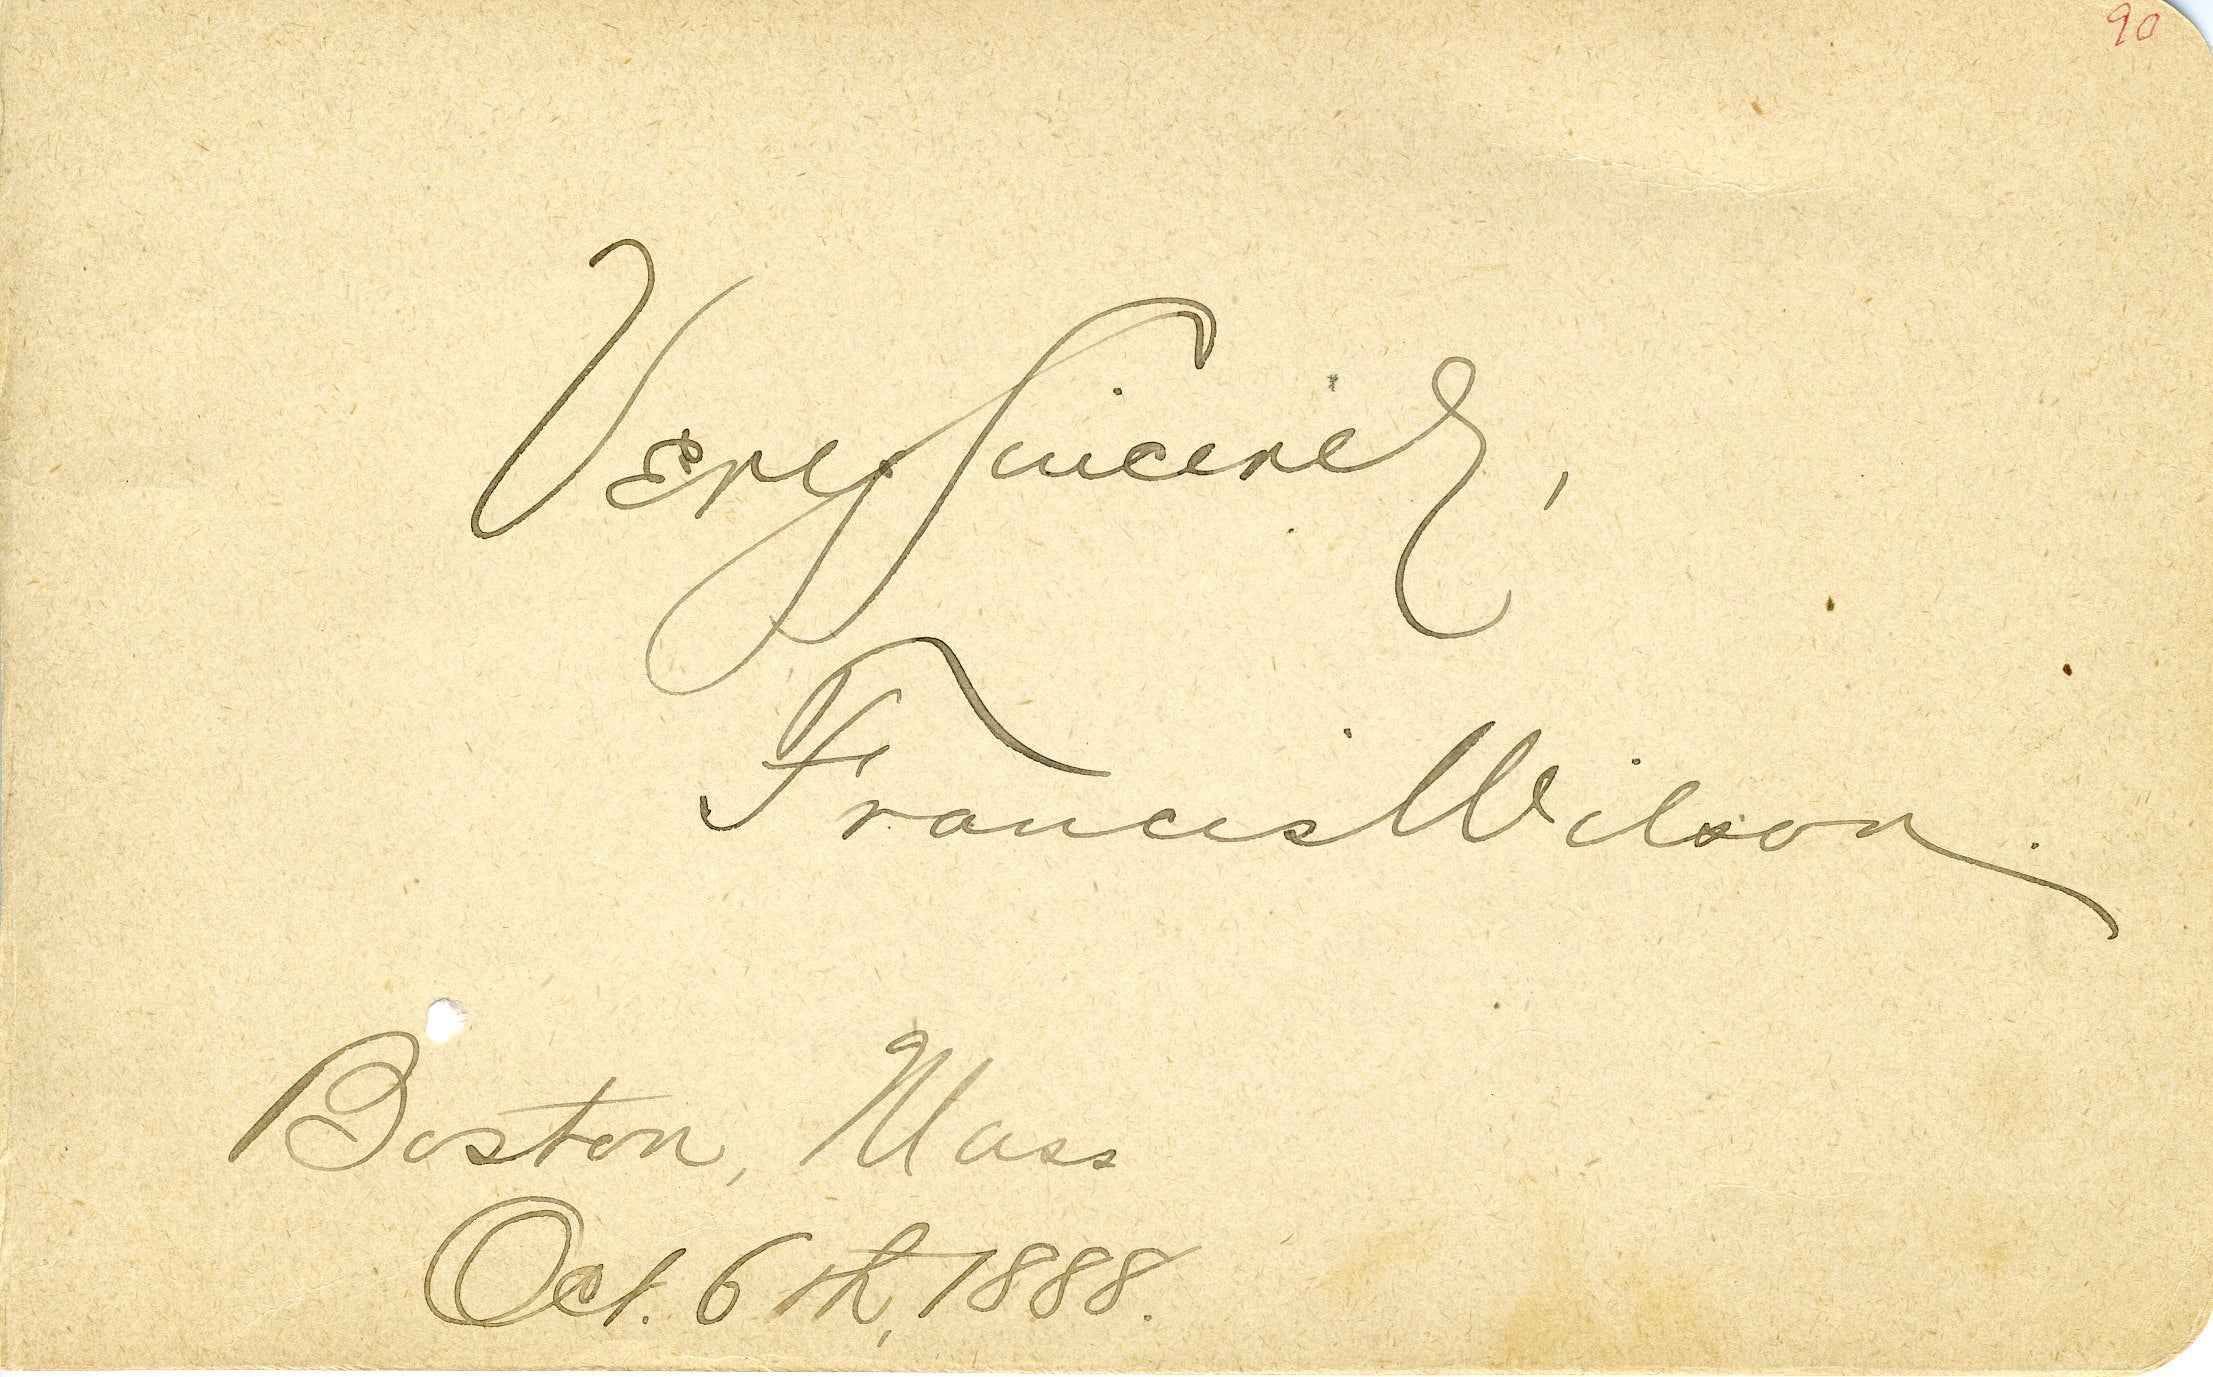 90
Very Sincerely,
Francis Wilson.
Boston, Mass
Oct. 6th, 1888.